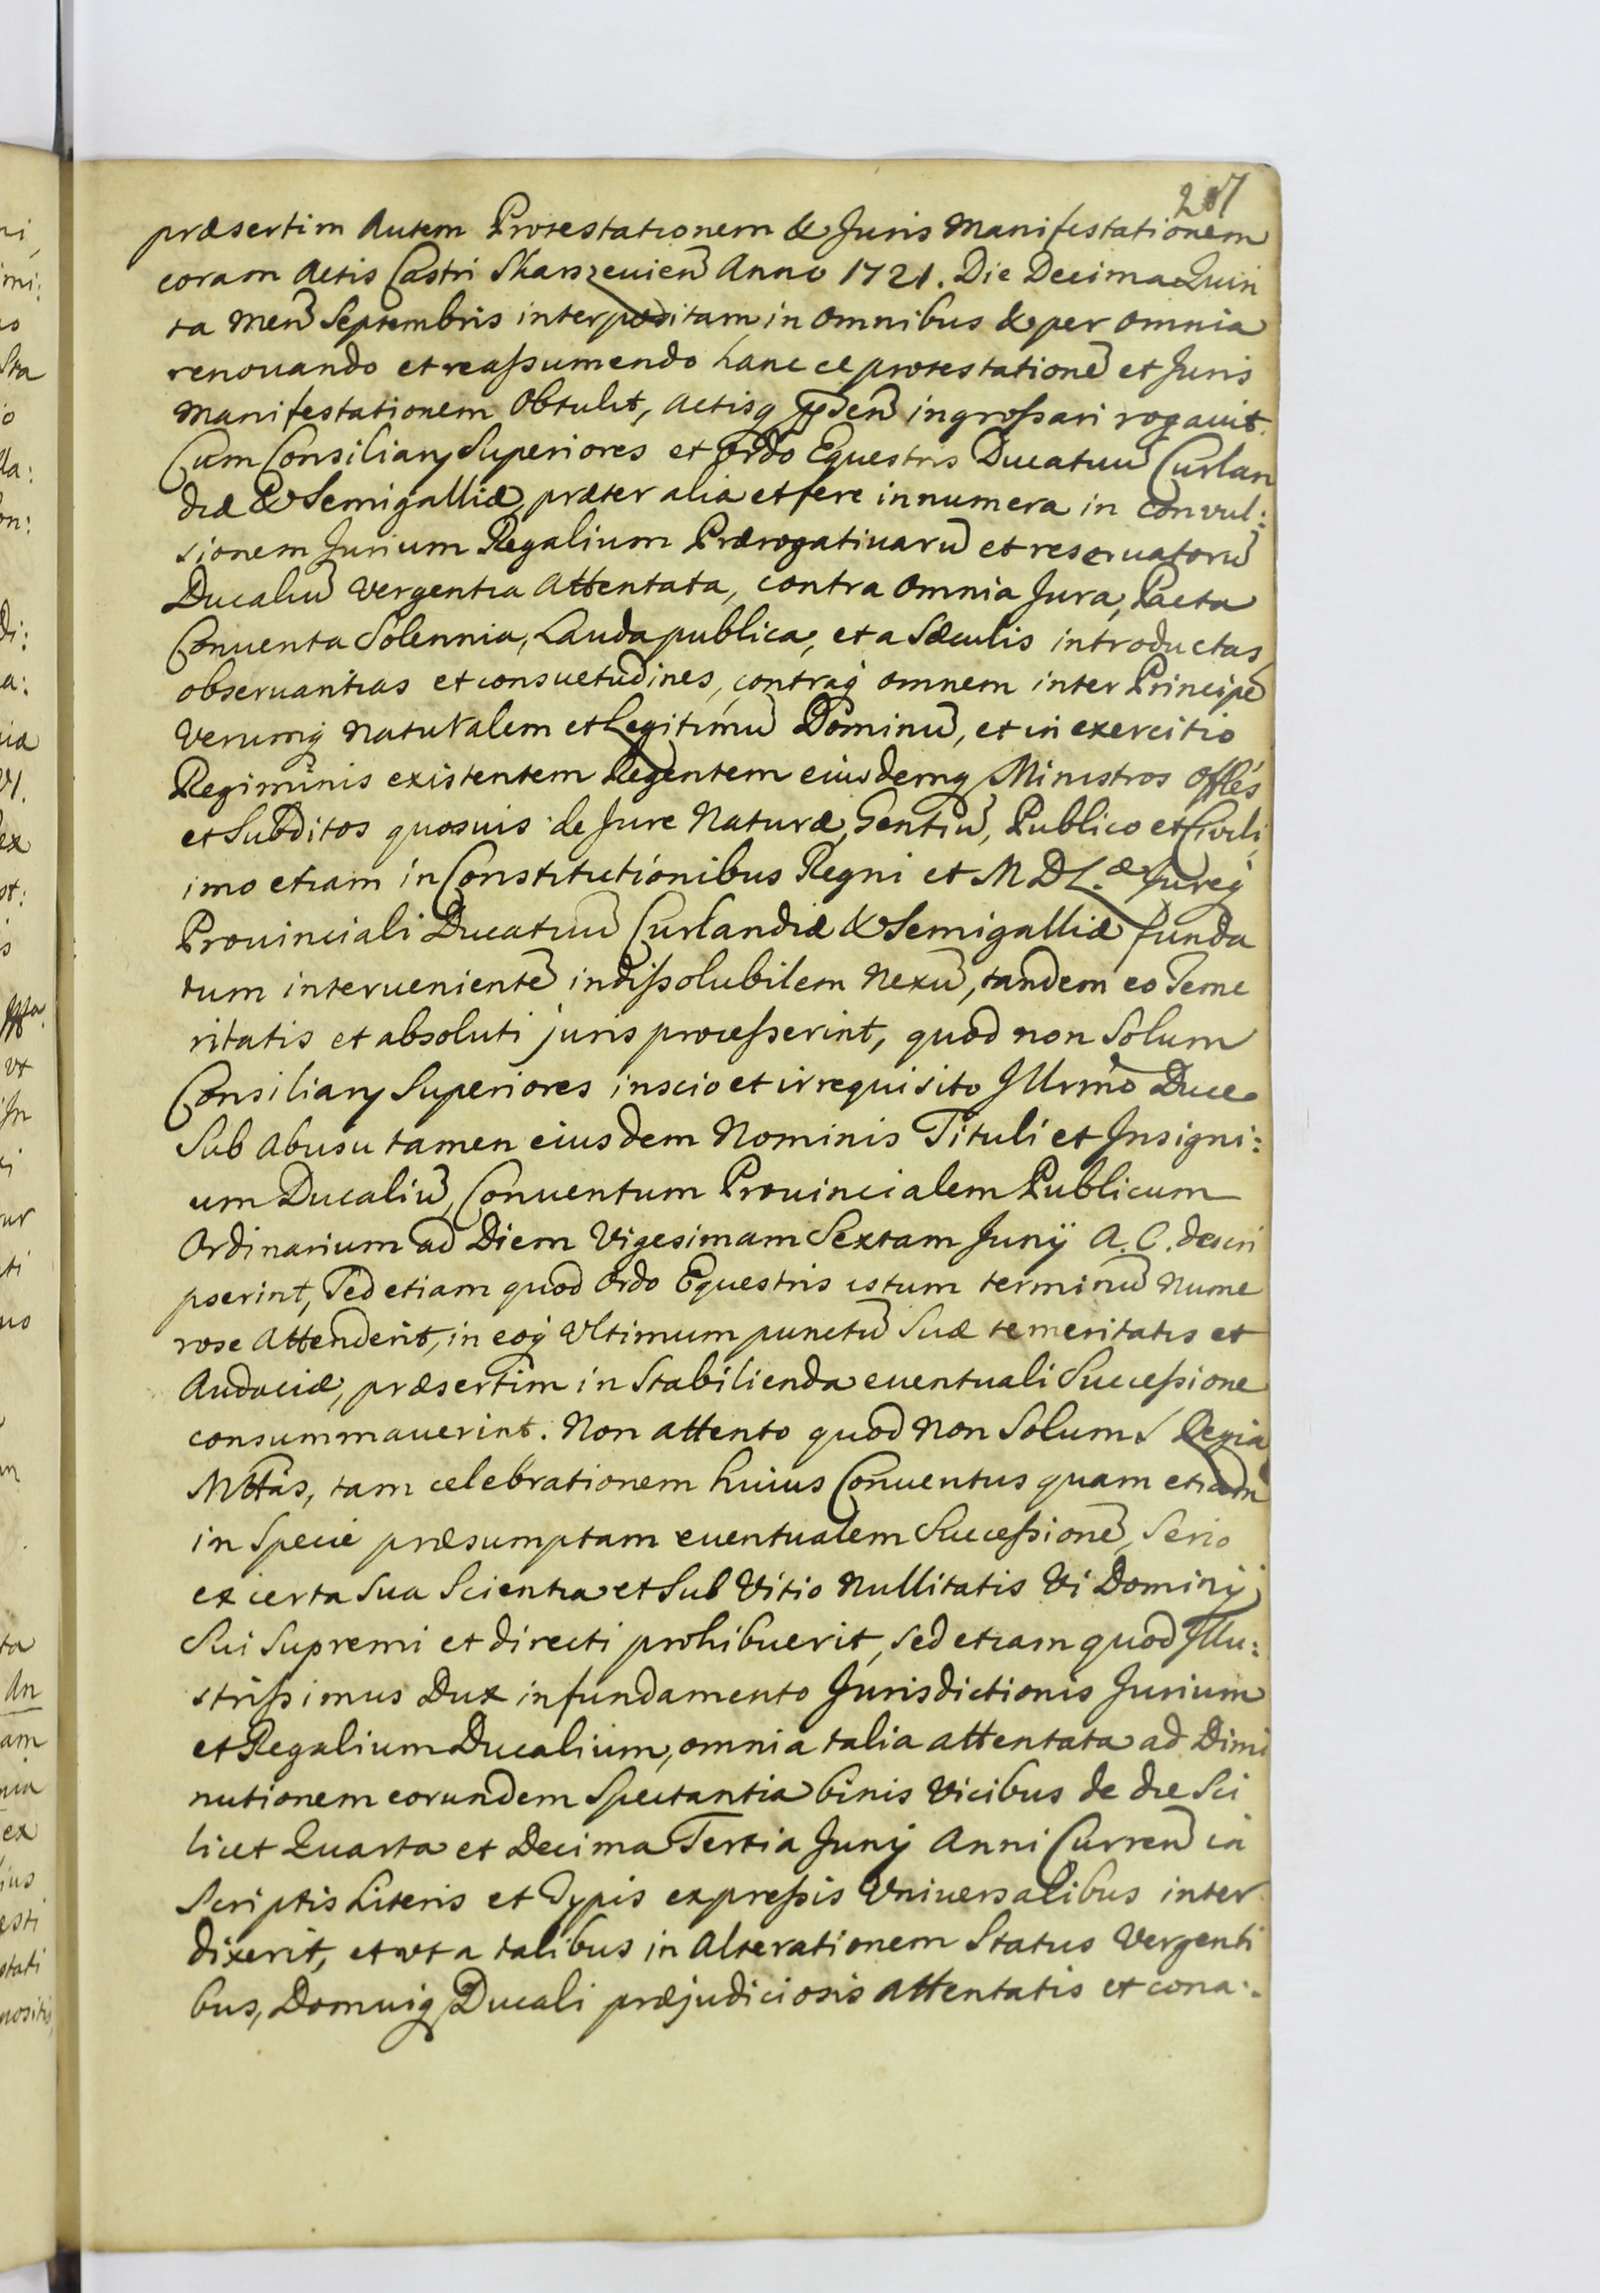 207
præsertim Autem Protestationem & Juris Manifestationem
coram Actis Castri Skarszeuien̄ Anno 1721. Die Decima Quin
ta Men̄ Septembris interpositam in omnibus & per omnia
renouando et reaſsumendo hanc ce protestationē et Juris
Manifestationem Obtulit, Actisq ingroſsari rogauit.
Cum Consiliarij Superiores et Ordo Equestris Ducatuū Curlan
diæ & Semigalliæ præter alia et fere innumera in Convul:
sionem Jurium Regalium Prærogatiuarū et reseruatorū
Ducaliū Vergentia Attentata, contra Omnia Jura, Pacta
Conuenta Solennia, Lauda publica, et a Sæculis introductas,
obseruantias et consuetudines, contraq omnem inter Principē
Verumq Naturalem et Legitimū Dominū, et in exercitio
Regiminis existentem Regentem eiusdemq Ministros Offles
et Subditos quosuis de Jure Naturæ, Gentiū, Publico et Ciuili
imo etiam in Constitutionibus Regni et M D L.æ Jureq
Prouinciali Ducatuū Curlandiæ & Semigalliæ funda
tum interuenientē indiſsolubilem Nexū, tandem eo Teme
ritatis et absoluti juris proceſserint, quod non Solum
Consiliarij Superiores inscio et irrequisito Jllrmo Duce
Sub Abusu tamen eiusdem Nominis Tituli et Insigni:
um Ducaliū, Conuentum Prouincialem Publicum
Ordinarium ad Diem Vigesimam Sextam Junij A. C. descri
pserint, Sed etiam quod Ordo Equestris istum terminū Nume
rose Attenderit, in eoq Ultimum punctū Suæ temeritatis et
Audaciæ, præsertim in Stabilienda euentuali Succeſsione
consummauerint. Non attento quod Non Solum S Regia
Mttas, tam celebrationem huius Conuentus quam etiam
in Specie præsumptam euentualem Succeſsionē, Serio
ex certa Sua Scientia et Sub Vitio Nullitatis Vi Dominij
Sui Supremi et directi prohibuerit, sed etiam quod Jllu:
striſsimus Dux in fundamento Jurisdictionis Jurium
et Regalium Ducalium, omnia talia attentata ad Dimi
nutionem eorundem Spectantia binis Vicibus de die Sci
licet Quarta et Decima Tertia Junij Anni Curren̄ in
Scriptis Literis et Typis expreſsis Vniuersalibus inter
dixerit, et vt a talibus in Alterationem Status Vergenti
bus, Domuiq Ducali præjudiciosis attentatis et cona: